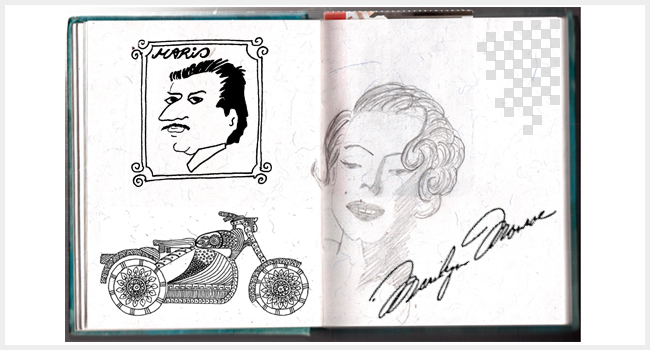 MARIO
Marilyn Monroe